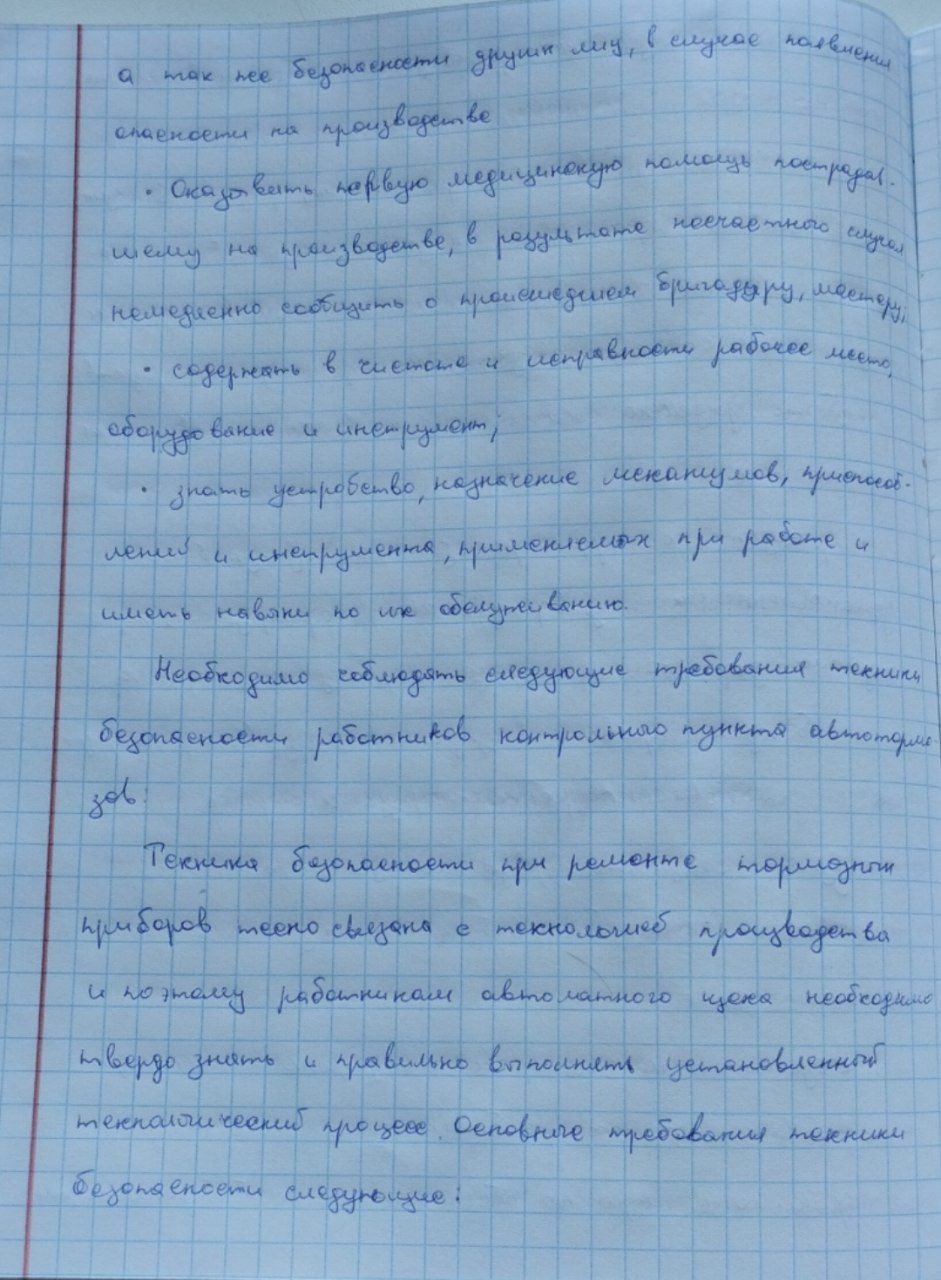 а так же безопасности других лиц, в случае появления
опасности на производстве
• Оказывать первую медицинскую помощь пострадав-
шему на производстве, в результате несчастного случая
немедленно сообщить о происшедшем бригадиру, мастеру;
• содержать в чистоте и исправности рабочее место,
оборудование и инструмент;
• знать устройство, назначение механизмов, приспособ-
лений и инструмента, применяемых при работе и
иметь навыки по их обслуживанию.
Необходимо соблюдать следующие требования техники
безопасности работников контрольного пункта автотормо-
зов:
Техника безопасности при ремонте тормозных
приборов тесно связана с технологией производства
и поэтому работникам автоматного цеха необходимо
твердо знать и правильно выполнять установленный
технологический процесс. Основные требования техники
безопасности следующие: